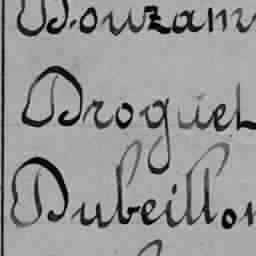 Douzam
Droguet
Dubeillon